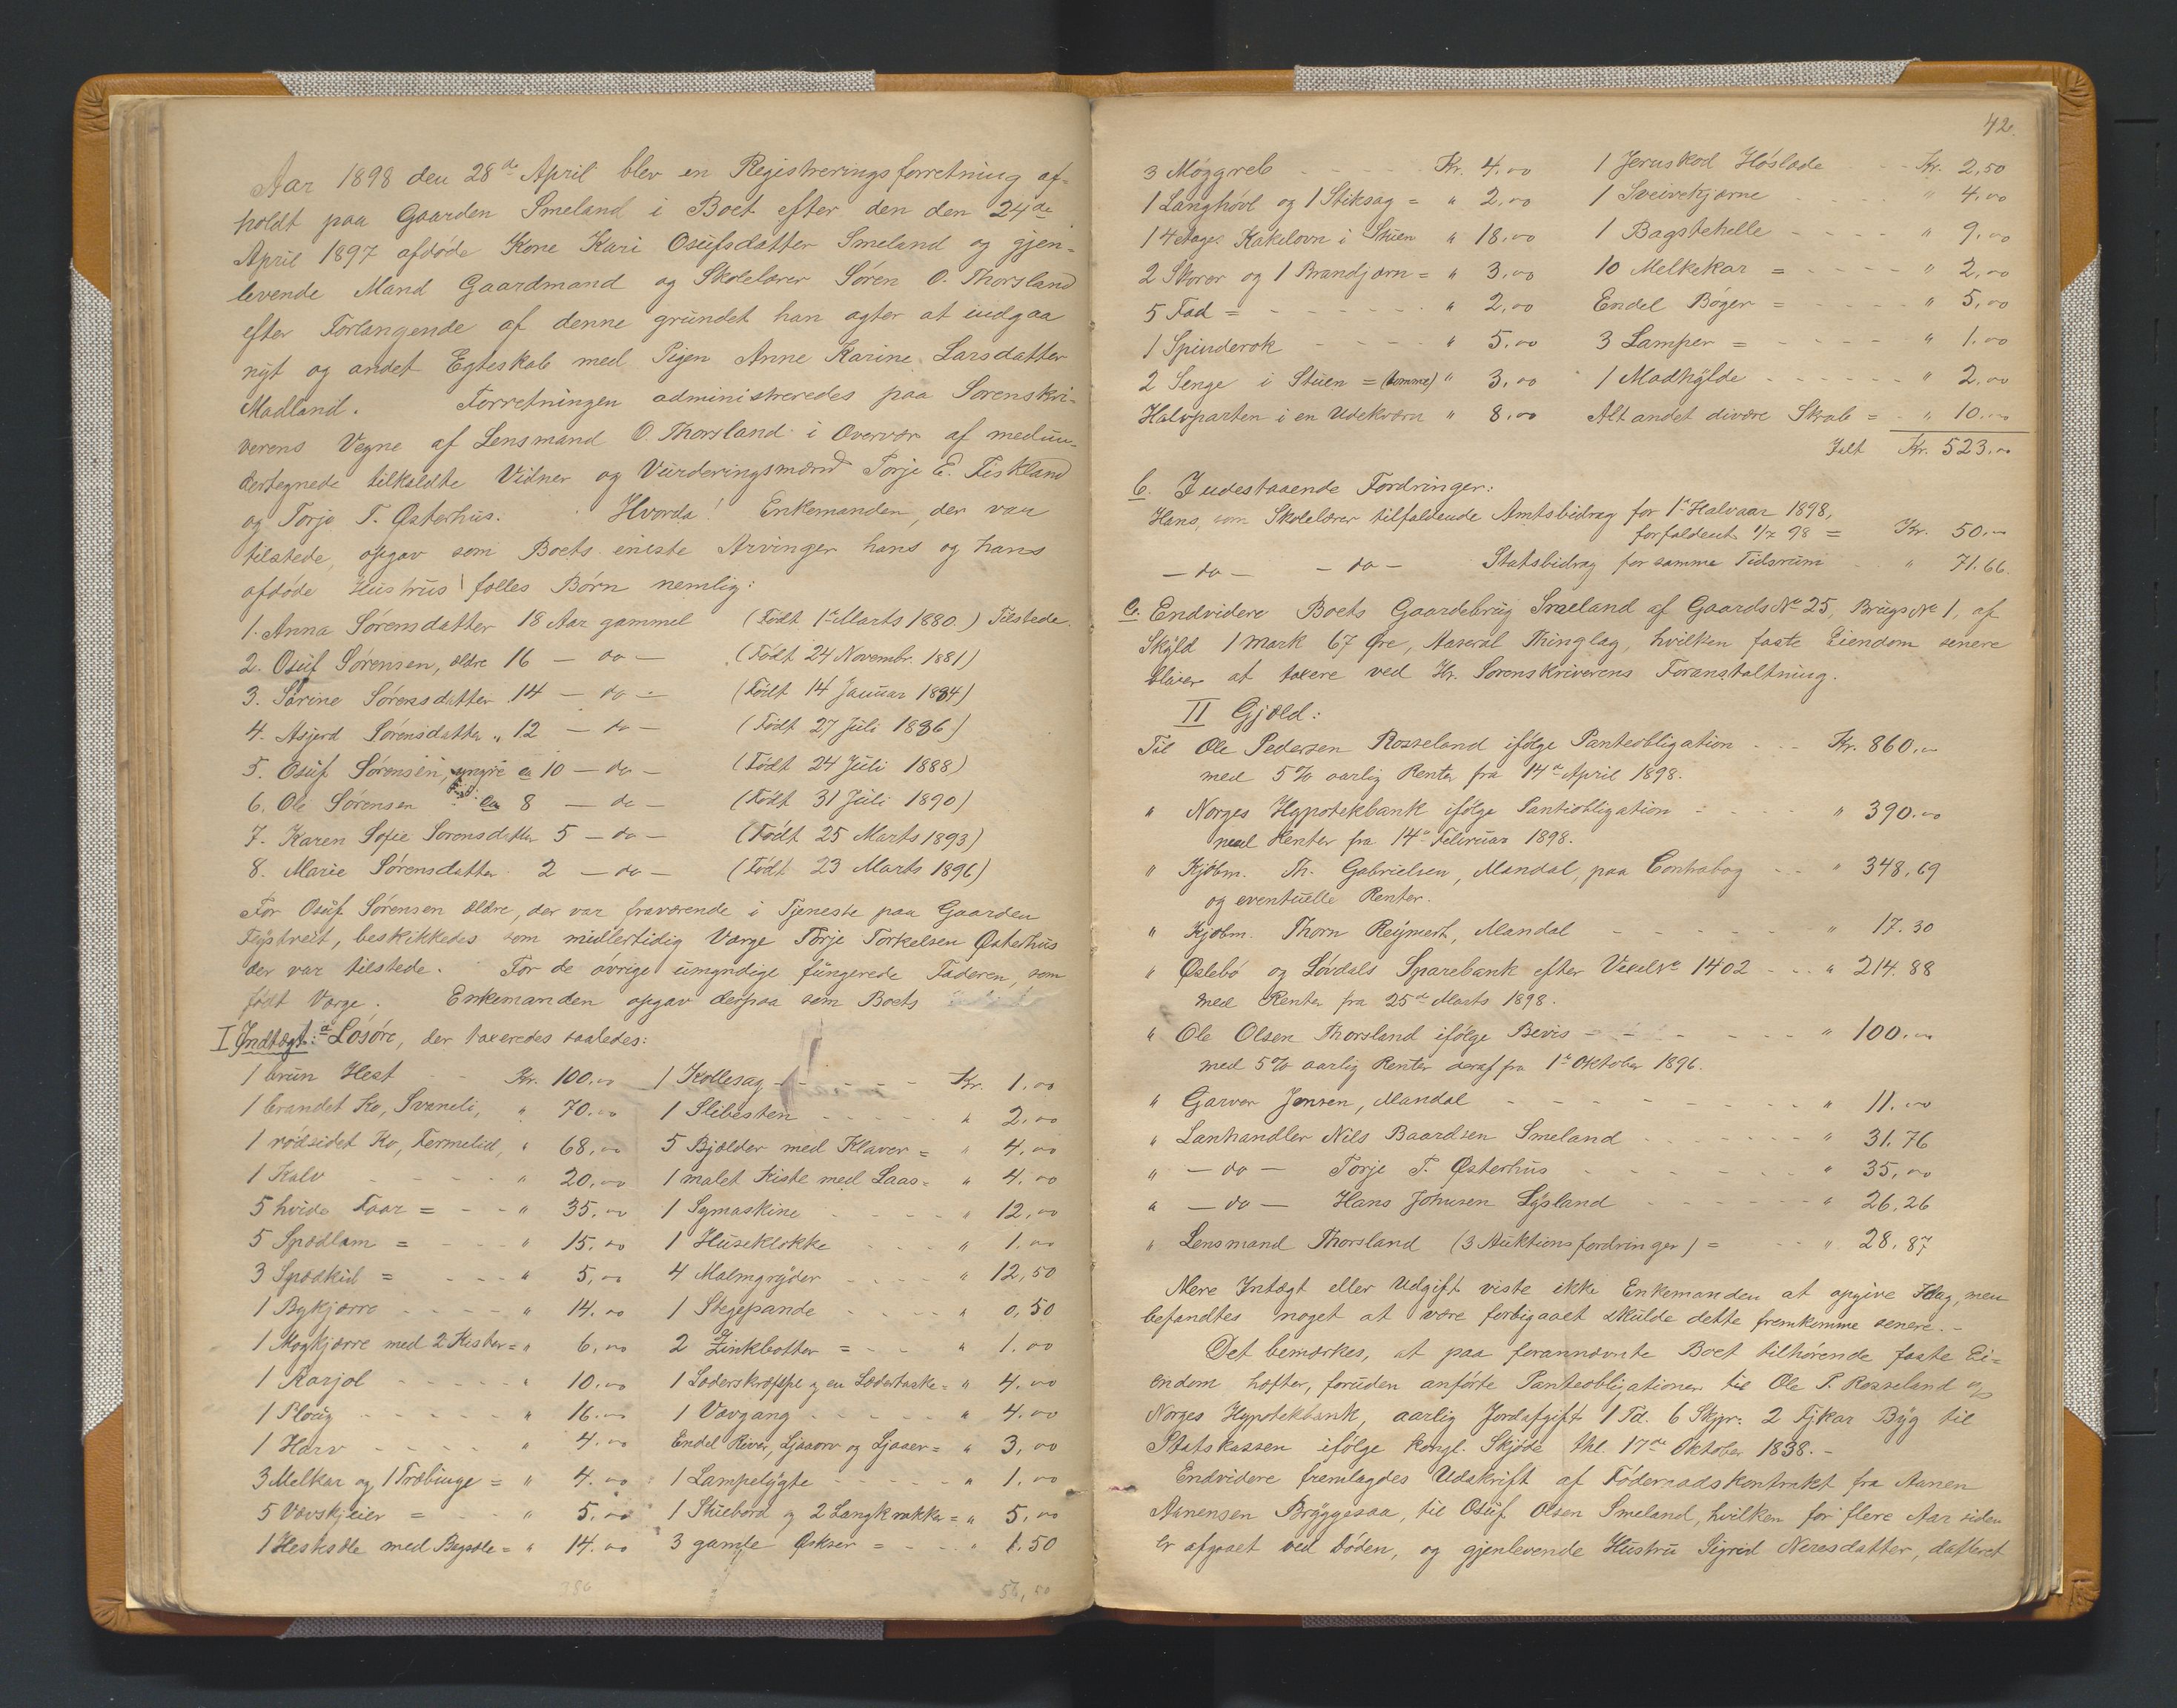 Aar 1898 den 28de April blev en Registreringsforretning af-
holdt paa Gaarden Smeland i Boet efter den den 24de
April 1897 afdøde Kone Kari Osufsdatter Smeland og gjen-
levende Mand Gaardmand og Skolelærer Søren O. Thorsland
efter Forlangende af denne grundet han agter at indgaa
nyt og andet Egteskab med Pigen Anne Karine Larsdatter
Madland. Forretningen administreredes paa Sorenskri-
verens Vegne af Lensmand O. Thorsland i Overvær af medun-
dertegnede tilkaldte Vidner og Vurderingsmænd Torje E. Fiskland
og Torje T. Østerhus. Hvorda! Enkemanden, der var
tilstede, opgav som Boets eneste Arvinger hans og hans
afdøde Hustrus fælles Børn nemlig:
1. Anna Sørensdatter 18 Aar gammel (Født 1ste Marts 1880.) Tilstede.
2. Osuf Sørensen, ældre 16 — do — (Født 24 Novembr. 1881)
3. Sørine Sørensdatter 14 — do — (Født 14 Januar 1884)
4. Asjerd Sørensdatter " 12 — do — (Født 27 Juli 1886)
5. Osuf Sørensen, yngre ca 10 — do — (Født 24 Juli 1888)
6. Ole Sørensen ca 8 — do — (Født 31 Juli 1890)
7. Karen Sofie Sorensdatter 5 — do — (Født 25 Marts 1893)
8. Marie Sørensdatter 2 — do — (Født 23 Marts 1896)
For Osuf Sørensen ældre, der var fraværende i Tjeneste paa Gaarden
beskikkedes som midlertidig Værge Torje Torkelsen Østerhus
der var tilstede. For de øvrige umyndige fungerede Faderen, som
født Værge. Enkemanden opgav derpaa som Boets
I Indtægt: a Løsøre, der taxeredes saaledes:
1 brun Hest - - Kr. 100.00
1 brandet Ko, Svaneli, " 70.00
1 rødsidet Ko, Fermelid, " 68,00
1 Kalv - - - - " 20,00
5 hvide Faar = - - " 35.00
5 Spædlam = - - " 15.00
3 Spædkid = - - - " 5,00
1 Bykjærre - - - - " 14.00
1 Møgkjærre med 2 Kister = " 6,00
1 Karjol - - - - - " 10.00
1 Ploug - - - - - " 16.00
1 Harv - - - - " 4.00
3 Melkar og 1 Træbinge = " 4.00
5 Vævskjeier = - - " 5.00
1 Hestsæle med Bagsæle = " 14.00
386
1 Kollesag - - - - - Kr. 1.00
1 Slibesten - - - - - " 2.00
5 Bjælder med Klaver = " 4.00
1 malet Kiste med Laas = " 4.00
1 Symaskine - - - - " 12,00
1 Huseklokke - - - " 1.00
4 Malmgryder - - - - " 12,50
1 Stegepande - - - - " 0,50
2 Zinkbøtter = - - " 1.00
1 Læderskræppe og en Lædertaske = " 4.00
1 Vævgang - - - - " 4.00
Endel River, Ljaaorv og Ljaaer = " 3,00
1 Lampelygte - - - - - " 1.00
1 Stuebord og 2 Langkrakker = " 5,00
3 gamle Økser = - - - " 1.50
56,50
42.
3 Møggreb - - - - - Kr. 4.00
1 Langhøvl og 1 Stiksag = " 2.00
1 4 etages Kakelovn i Stuen " 18.00
2 Skorer og 1 Brandjærn = " 3.00
5 Fad = - - - - - - " 2,00
1 Spinderok - - - - " 5.00
2 Senge i Stuen = (tomme) " 3,00
Halvparten i en Udekværn " 8.00
1 Jernskod Høslæde - - - Kr. 2,50
1 Sveivekjærne - - - - " 4,00
1 Bagstehelle - - - - " 9,00
10 Melkekar = - - - - " 2,00
Endel Bøger = - - - - " 5,00
3 Lamper = - - - - " 1.00
1 Madhylde - - - - - " 2,00
Alt andet divære Skrab = " 10.00
Ialt Kr. 523.00
b. Indestaaende Fordringer:
Hans, som Skolelærer tilfaldende Amtsbidrag for 1ste Halvaar 1898,
forfaldent 1/7 98 = Kr. 50.00
— do — — do — Statsbidrag for samme Tidsrum - - " 71.66.
c. Endvidere Boets Gaardebrug Smeland af Gaards No 25, Brugs No 1, af
Skyld 1 Mark 67 Øre, Aaseral Thinglag, hvilken faste Eiendom senere
bliver at taxere ved Hr. Sorenskriverens Foranstaltning.
II Gjæld:
Til Ole Pedersen Rosseland ifølge Panteobligation - - - Kr. 860.00
med 5% aarlig Renter fra 14de April 1898.
" Norges Hypotekbank ifølge Pantiobligation - - - - " 390.00
med Renter fra 14de Februar 1898.
" Kjøbm. Th. Gabrielsen, Mandal, paa Contrabog - - - " 348,69
og eventuelle Renter.
" Kjøbm. Thorn Reymert, Mandal - - - - - - " 17.30
" Øslebø og Løvdals Sparebank efter Vexel No 1402 - - - " 214.88
med Renter fra 25de Marts 1898.
" Ole Olsen Thorsland ifølge Bevis - - - - - - " 100.00
med 5% aarlig Renter deraf fra 1ste Oktober 1896.
" Garver Jensen, Mandal - - - - - - - - " 11.00
" Lanhandler Nils Baardsen Smeland - - - - - - " 31.76
" — do — Torje T. Østerhus - - - - - - " 35,00
" — do — Hans Johnsen Lysland - - - - - - " 26,26
" Lensmand Thorsland (3 Auktionsfordringer) = - - " 28,87
Mere Intægt eller Udgift viste ikke Enkemanden at opgive Idag, men
befandtes noget at være forbigaaet skulde dette fremkomme senere. -
Det bemærkes, at paa forannævnte Boet tilhørende faste Ei=
endom hæfter, foruden anførte Panteobligationer til Ole P. Rosseland og
Norges Hypotekbank, aarlig Jordafgift 1 Td. 6 Skjpr: 2 Fjkar Byg til
Statskassen ifølge kongl. Skjøde thl. 17de Oktober 1838. -
Endvidere fremlagdes Udskrift af Føderaadskontrakt fra Aanen
Aanensen Bryggesaa, til Osuf Olsen Smeland, hvilken for flere Aar siden
er afgaaet ved Døden, og gjenlevende Hustru Sigrid Neresdatter, datteret